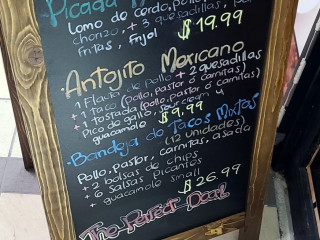 Picada
lomo de cerdo, pollo,
chorizo, + 3 quesadillas,
fritas, frijol $19.99
Antojito Mexicano
1 Flauta de pollo + 2 quesadillas
+ 1 taco (pollo, pastor ó carnitas)
+ 1 tostada (pollo, pastor ó carnitas)
Pico de gallo, sour cream y
guacamole $9.99
Bandeja de Tacos Mixtos
(12 unidades)
Pollo, Pastor, carnitas, asada
+ 2 bolsas de chips
+ 6 salsas picantes
+ guacamole small
$26.99
The Perfect Deal